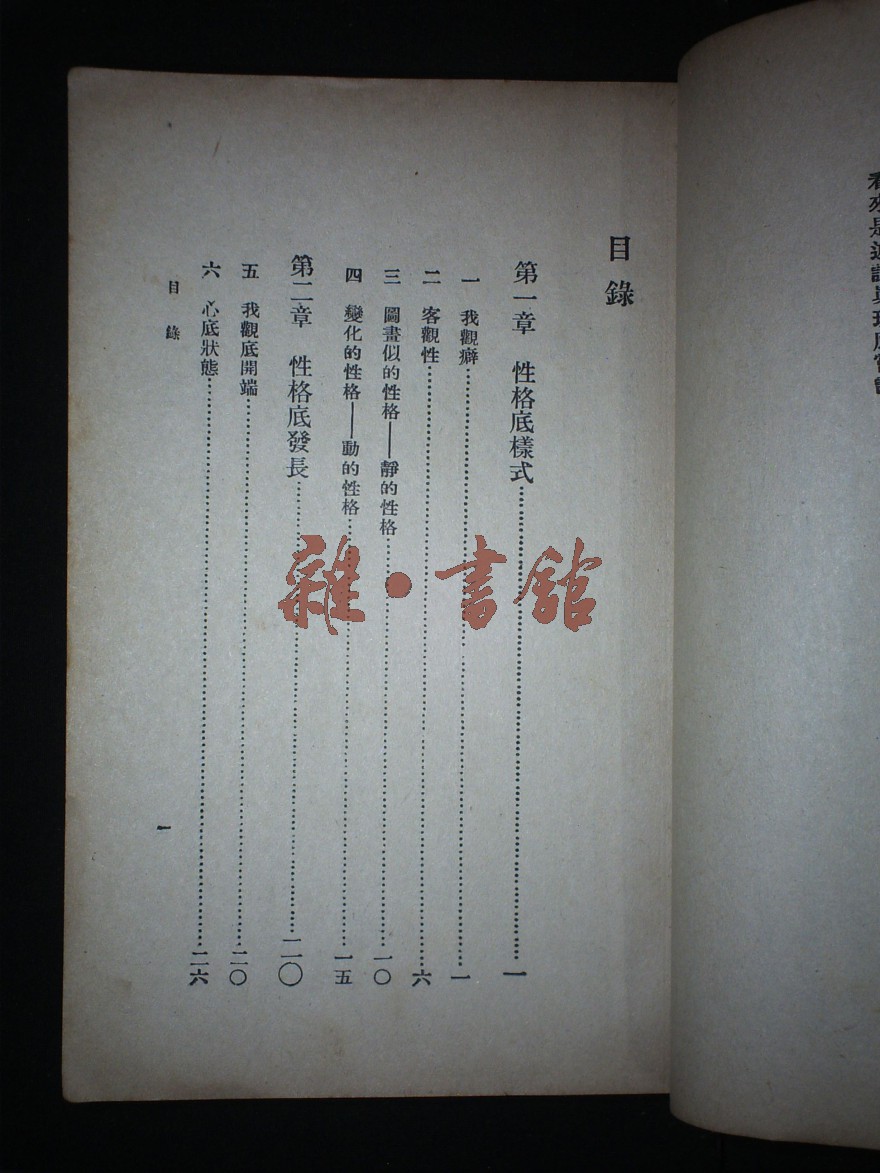 目錄
第一章　性格底樣式……一
一　我觀癖……一
二　客觀性……六
三　圖畫似的性格——靜的性格……一〇
四　變化的性格——動的性格……一五
第二章　性格底發長……二〇
五　我觀底開端……二〇
六　心底狀態……二六
目錄
一
雜·書館